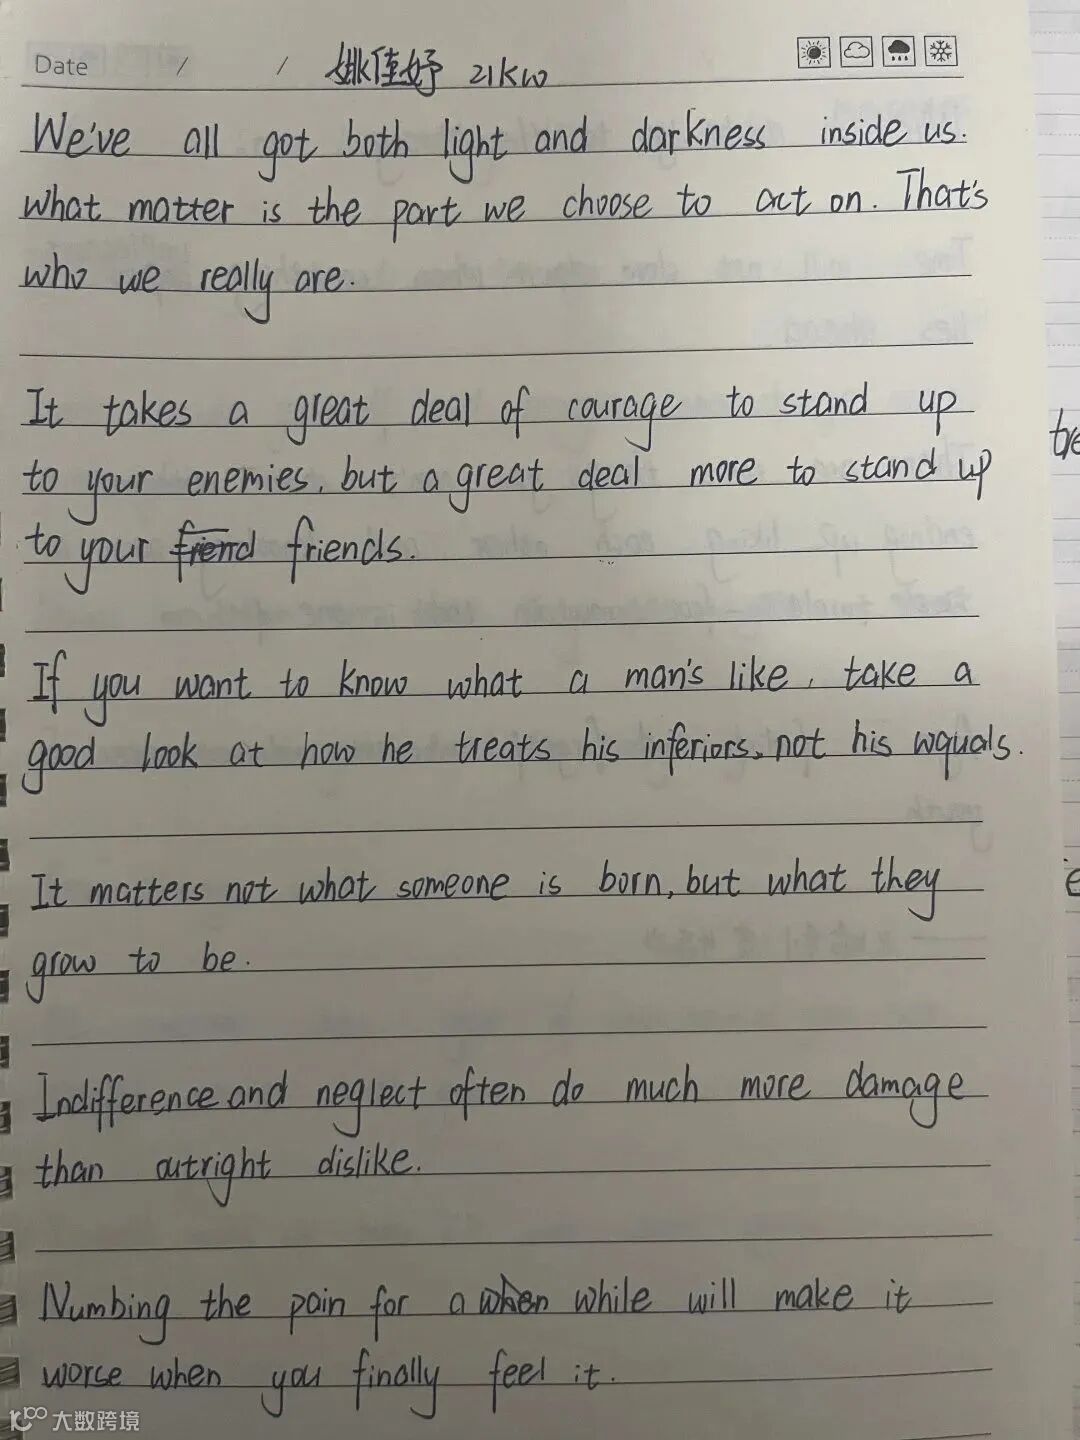 Date / / 姚佳妤 21KW
We've all got both light and darkness inside us.
what matter is the part we choose to act on. That's
who we really are.
It takes a great deal of courage to stand up
to your enemies, but a great deal more to stand up
to your friend friends.
If you want to know what a man's like, take a
good look at how he treats his inferiors, not his wquals.
It matters not what someone is born, but what they
grow to be.
Indifference and neglect often do much more damage
than outright dislike.
Numbing the pain for a when while will make it
worse when you finally feel it.
大数跨境